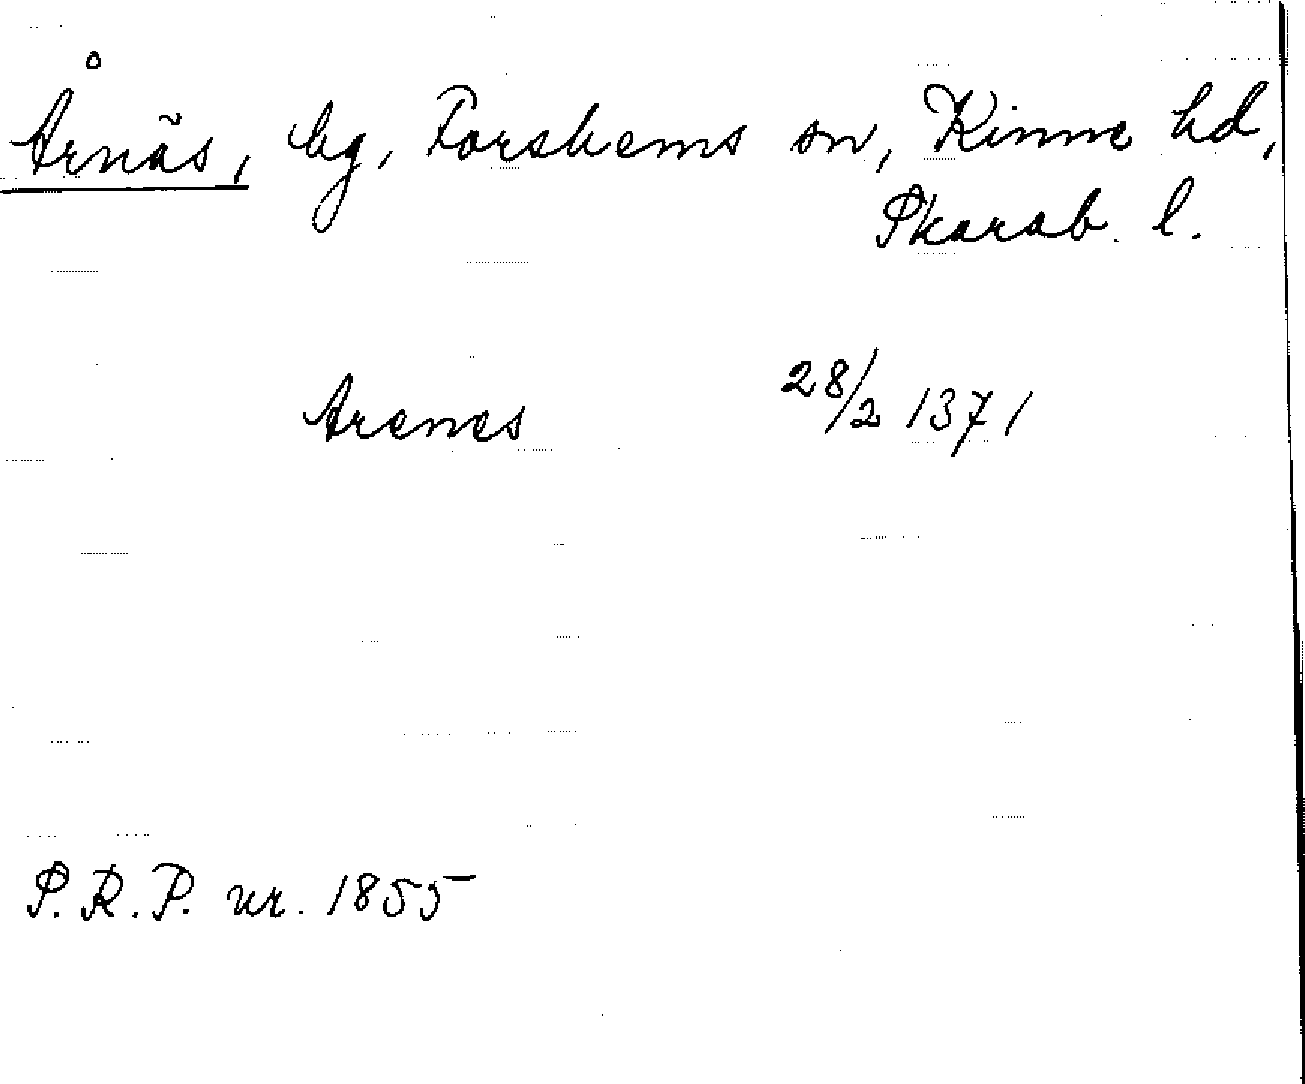 Årnäs, bg, Forshems sn, Kinne hd,
Skarab. l.
Arenes 28/2 1371
S.R.P. nr. 1855